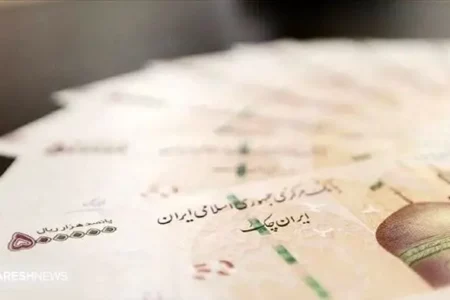 بانک مرکزی جمهوری اسلامی ایران
ایران چک
پانصد هزار ریال
۵۰۰۰۰۰
ARESHNEWS